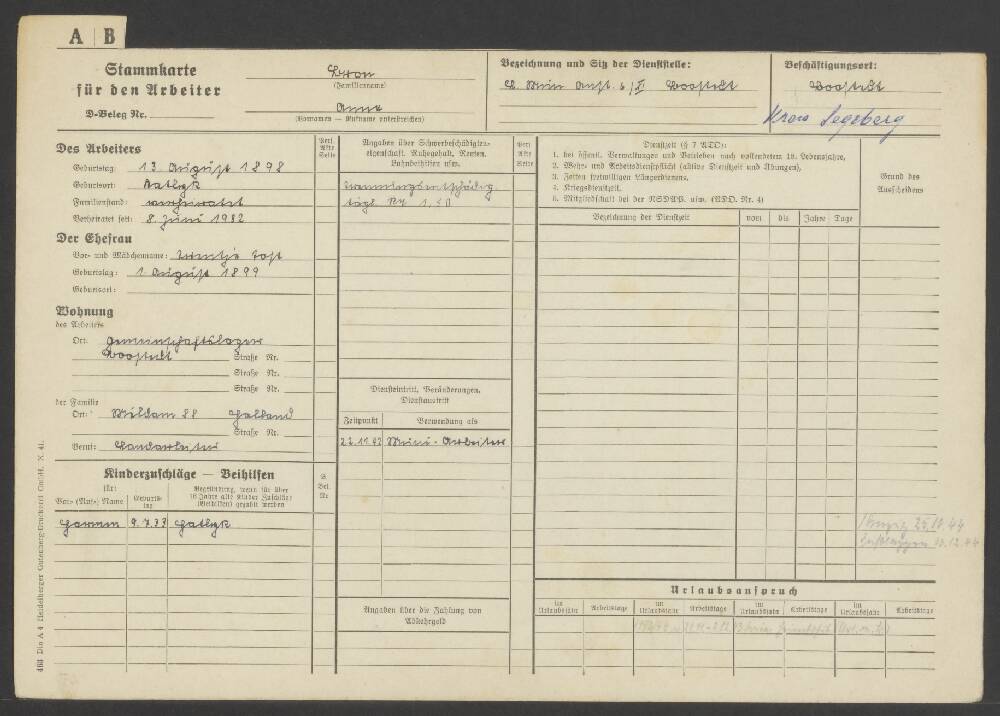 A | B
Stammkarte
für den Arbeiter
D-Beleg Nr.
(Familienname)
Anne
(Vornamen — Rufname unterstreichen)
Bezeichnung und Sitz der Dienststelle:
Boostedt
Beschäftigungsort:
Boostedt
Kreis Segeberg
Des Arbeiters
Geburtstag: 13. August 1898
Geburtsort:
Familienstand: verheiratet
Verheiratet seit: 8. Juni 1932
Der Ehefrau
Vor- und Mädchenname: Post
Geburtstag: 1 August 1899
Geburtsort:
Wohnung
des Arbeiters
Ort: Gemeinschaftslager
Boostedt Straße Nr.
Straße Nr.
Straße Nr.
der Familie
Ort: 88 Holland
Straße Nr.
Beruf: Landarbeiter
Kinderzuschläge — Beihilfen
für:
Vor- (Ruf-) Name
Geburtstag
Begründung, wenn für über
16 Jahre alte Kinder Zuschläge
(Beihilfen) gezahlt werden
9.7.33
Perf.
Akte
Seite
S
Bel.
Nr
Angaben über Schwerbeschädigten-
eigenschaft, Ruhegehalt, Renten,
Bahnbeihilfen usw.
Trennungsentschädig.
tägl. RM 1,50
Diensteintritt, Veränderungen,
Dienstaustritt
Zeitpunkt
Verwendung als
23.11.42 Muni-Arbeiter
Angaben über die Zahlung von
Abkehrgeld
Perf.
Akte
Seite
Dienstzeit (§ 7 ADO):
1. bei öffentl. Verwaltungen und Betrieben nach vollendetem 18. Lebensjahre,
2. Wehr- und Arbeitsdienstpflicht (aktive Dienstzeit und Übungen),
3. Zeiten freiwilligen Längerdienens,
4. Kriegsdienstzeit.
5. Mitgliedschaft bei der NSDAP. usw. (ADO. Nr. 4)
Bezeichnung der Dienstzeit
vom
bis
Jahre
Tage
Grund des
Ausscheidens
25.10.44
10.12.44
Urlaubsanspruch
im
Urlaubsjahr
Arbeitstage
im
Urlaubsjahr
Arbeitstage
im
Urlaubsjahr
Arbeitstage
im
Urlaubsjahr
Arbeitstage
463 Din A 4 Heidelberger Gutenberg-Druckerei GmbH. X. 41.